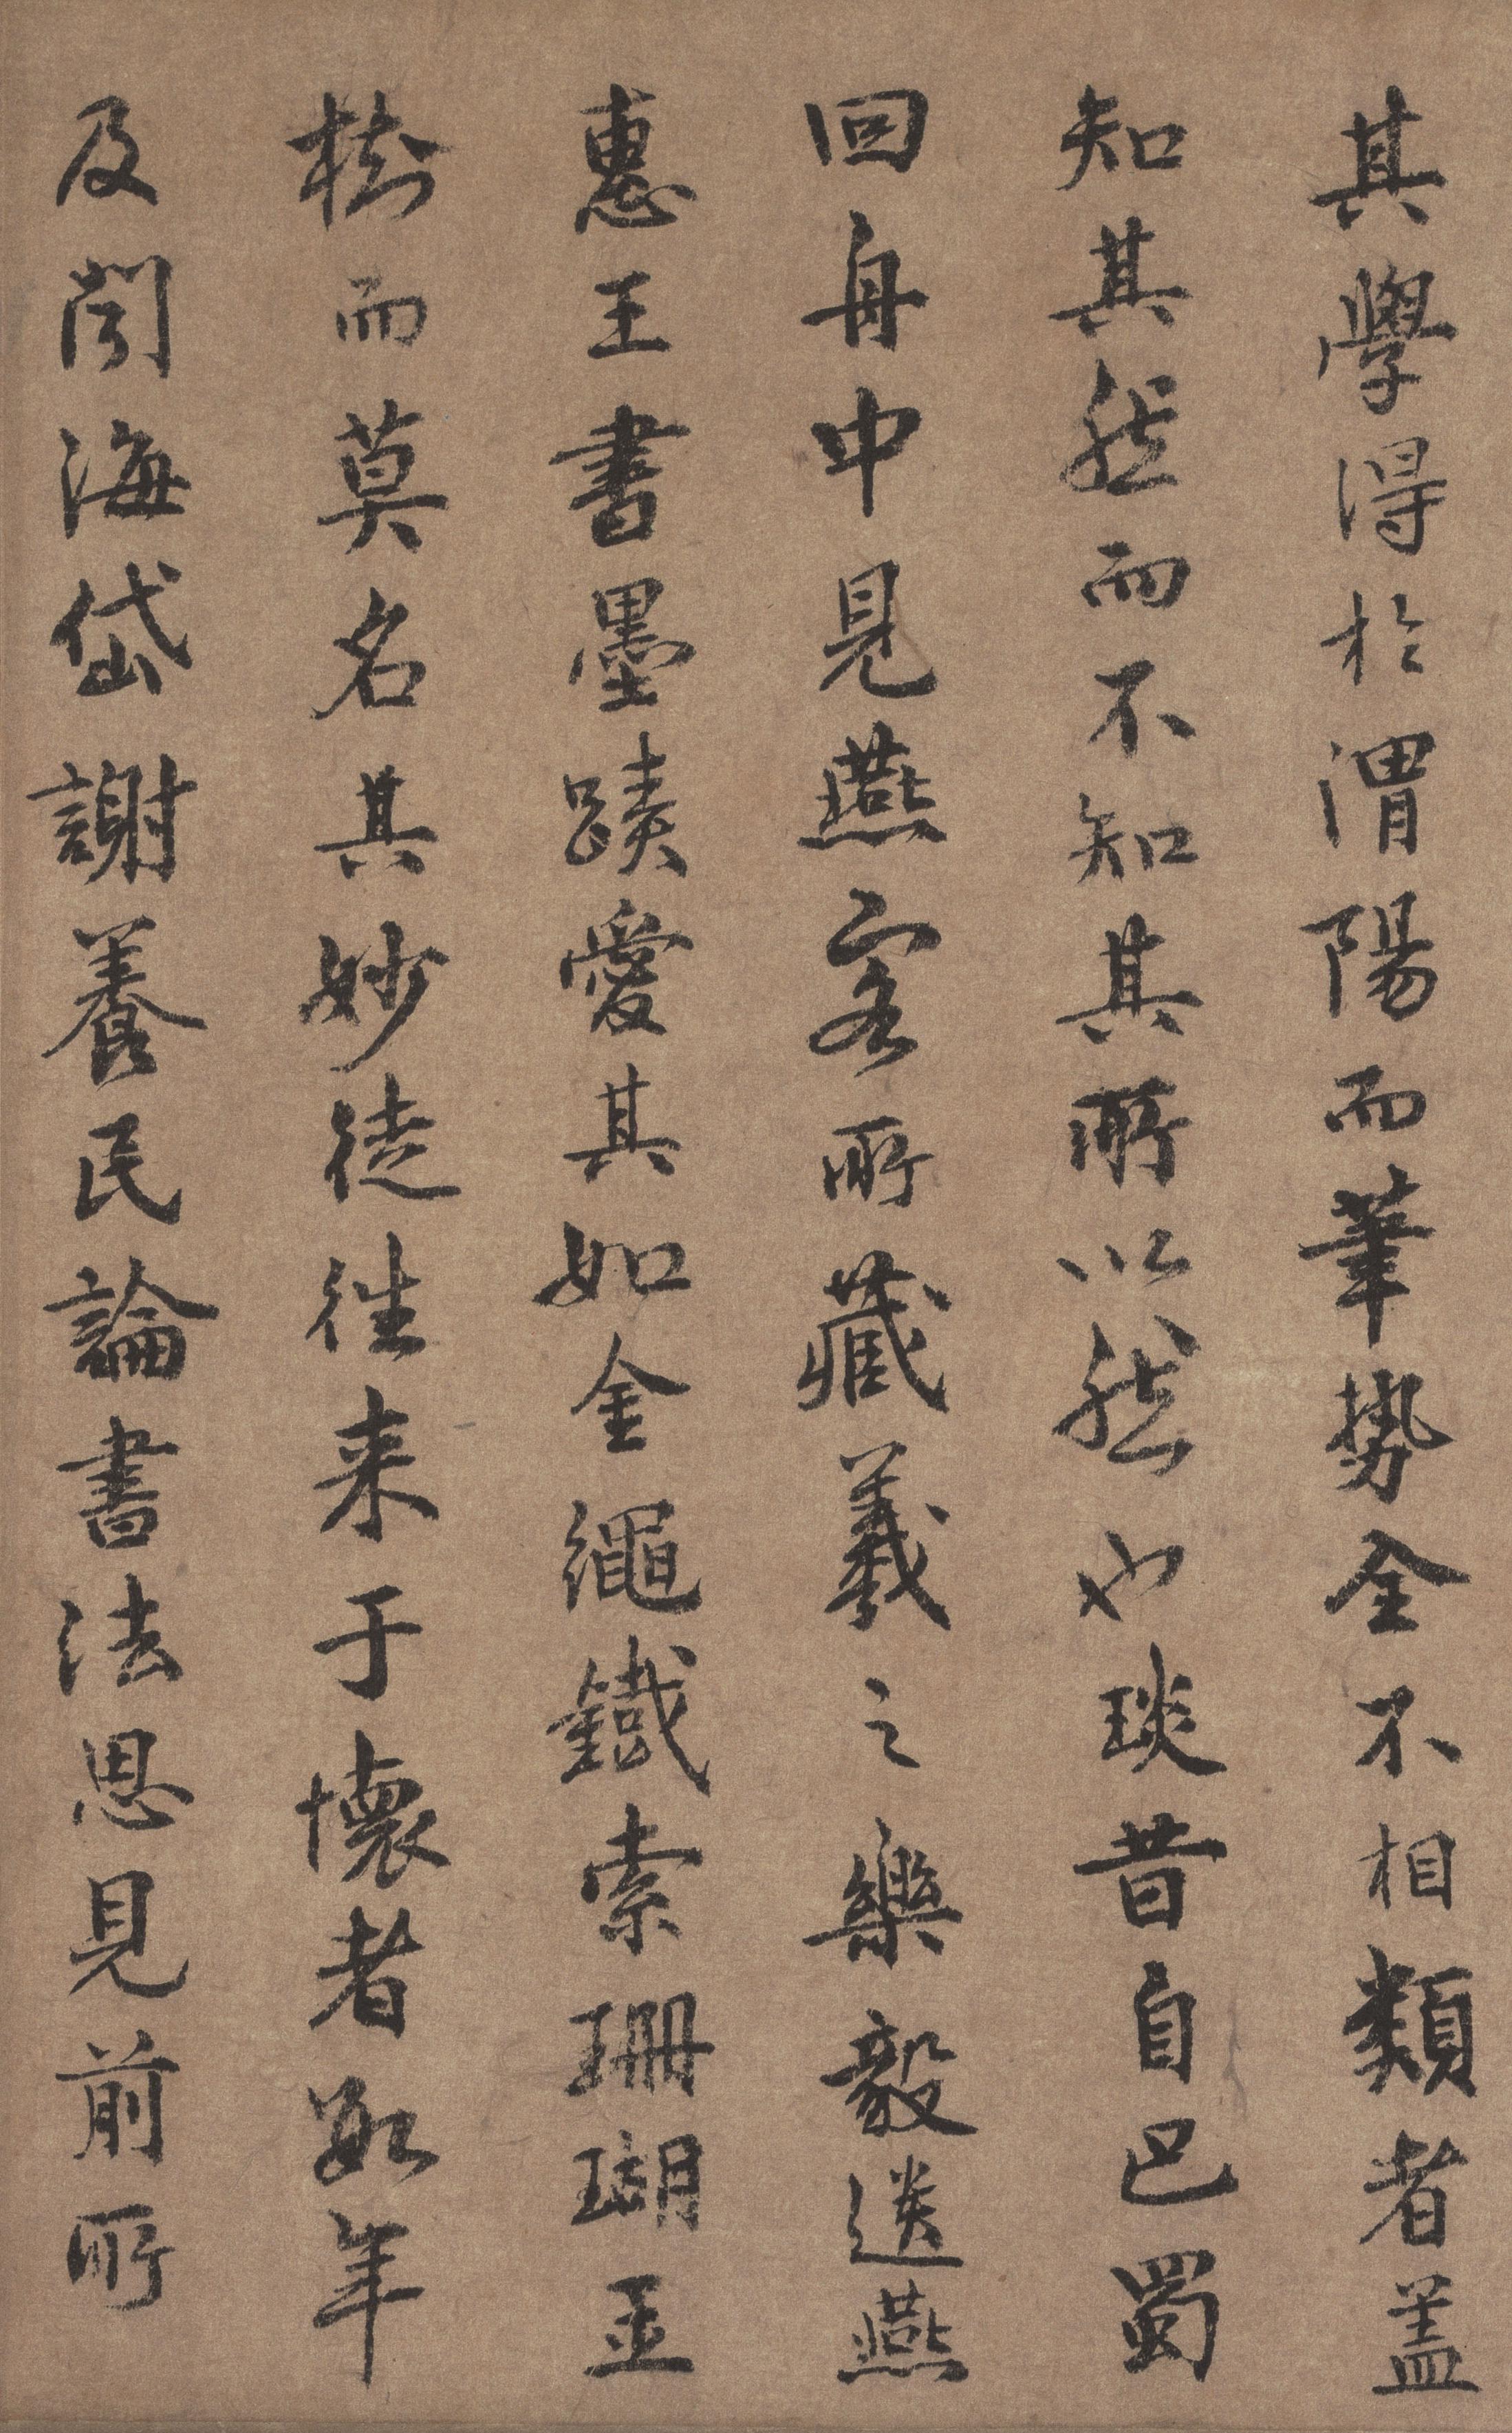 其學得於渭陽而筆勢全不相類者蓋
知其然而不知其所以然也琰昔自巴蜀
回舟中見燕客所藏羲之樂毅送燕
惠王書墨蹟愛其如金繩鐵索珊瑚玉
樹而莫名其妙徒往来于懷者數年
及聞海岱謝養民論書法恩見前所